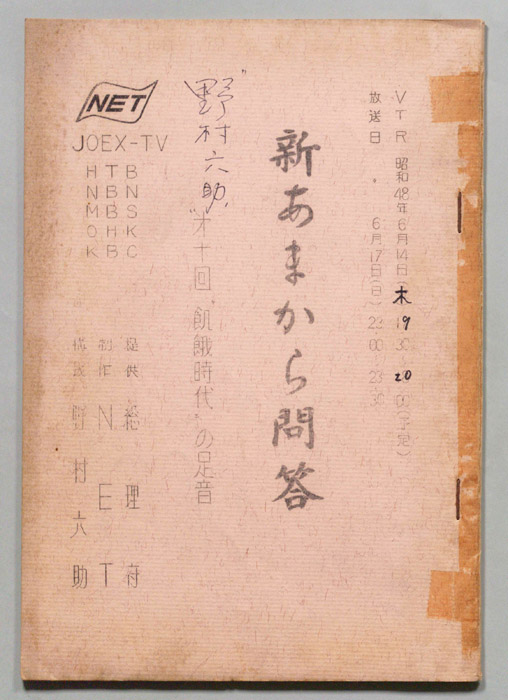 VTR 昭和48年6月14日 木 19 30 20 00(予定)
放送日 6月17日(日) 23 00 23 30
新あまから問答
"野村六助"
第十回 飢餓時代"の足音
NET
JOEX-TV
HTB
NBN
MBS
OHK
KBC
提供 総理府
制作 NET
構成 野村六助